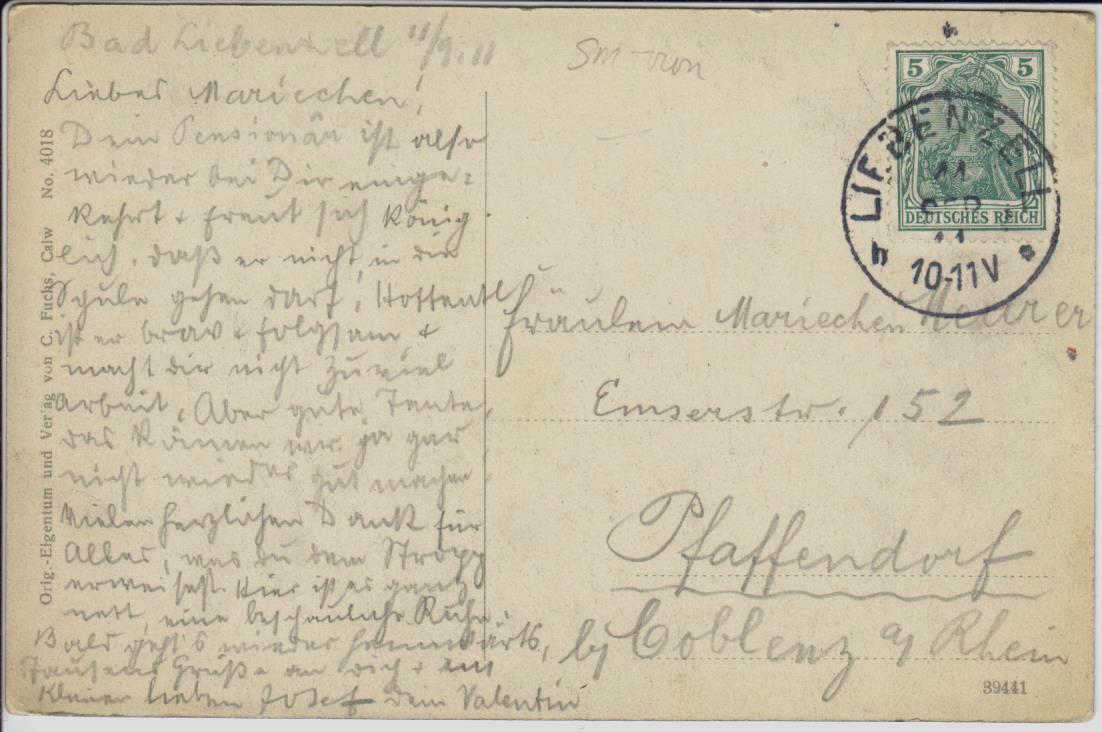 Bad Liebenzell 11/9.11
Liebes Mariechen!
Dein Pensionär ist also
wieder bei Dir einge-
kehrt + freut sich König
lich, daß er nicht in die
Schule gehen darf! Hoffentl
ist er brav + folgsam +
macht dir nicht zuviel
Arbeit. Aber gute Tante,
das können wir ja gar
nicht wieder gut machen.
Vielen herzlichen Dank für
Alles, was du dem Stropp
erweisest. Hier ist es ganz
nett, eine beschauliche Ruhe.
Bald geht's wieder heimwärts,
Tausend Grüße an dich +
kleinen lieben Josef dein Valentin
Orig.-Eigentum und Verlag von C. Fuchs, Calw No. 4018
5 5
DEUTSCHES REICH
LIEBENZELL
11
SEP
11
10-11V
Fräulein Mariechen Meurer
Emserstr. 152
Pfaffendorf
by Coblenz a/ Rhein
39441